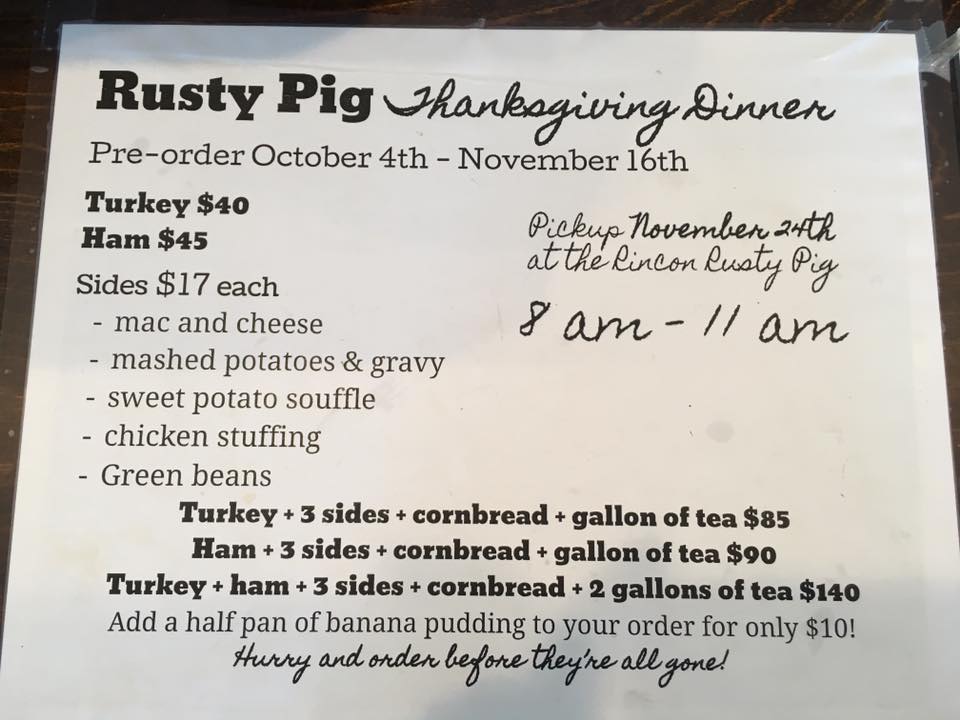 Rusty Pig Thanksgiving Dinner
Pre-order October 4th - November 16th
Turkey $40
Ham $45
Sides $17 each
- mac and cheese
- mashed potatoes & gravy
- sweet potato souffle
- chicken stuffing
- Green beans
Pickup November 24th
at the Rincon Rusty Pig
8 am - 11 am
Turkey + 3 sides + cornbread + gallon of tea $85
Ham + 3 sides + cornbread + gallon of tea $90
Turkey + ham + 3 sides + cornbread + 2 gallons of tea $140
Add a half pan of banana pudding to your order for only $10!
Hurry and order before they're all gone!